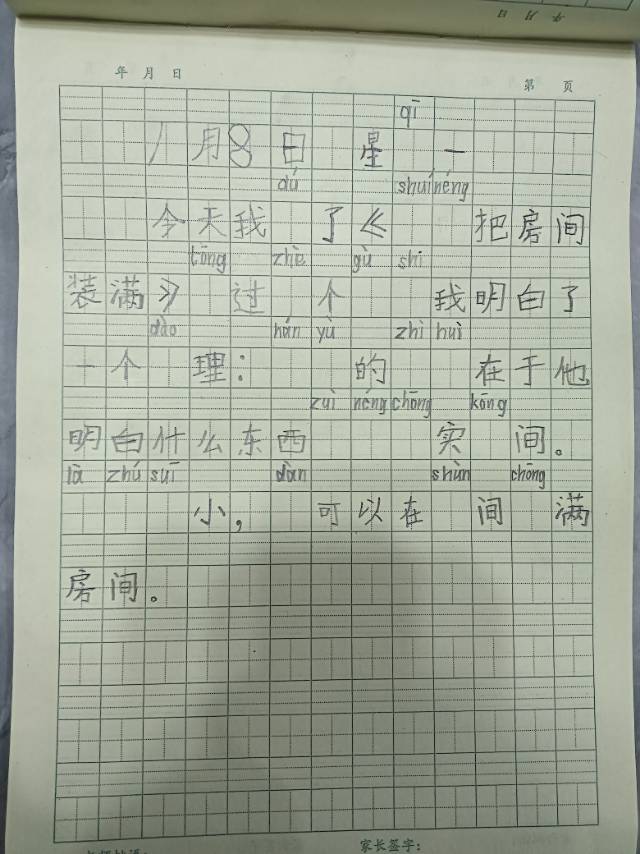 年 月 日
年 月 日 第 页
qī
八月8日 星 一
dú shuí néng
今天我 了《 把房间
tōng zhè gù shi
装满》 过 个 我明白了
dào hán yù zhì huì
一个 理: 的 在于他
zuì néng chōng kōng
明白什么东西 实 间。
là zhú suī dàn shùn chōng
小, 可以在 间 满
房间。
家长签字: